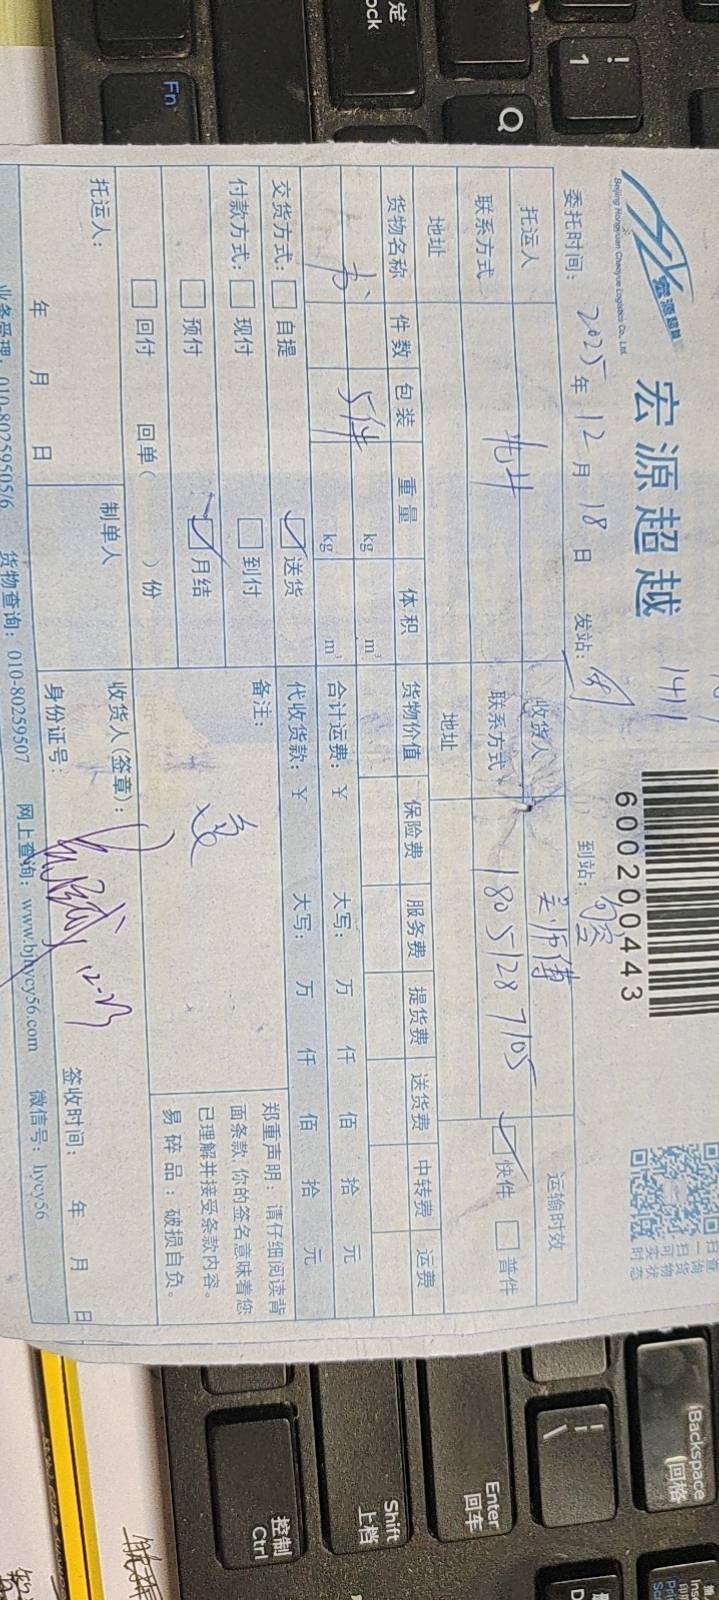 宏源超越
Beijing Hongyuan Chaoyue Logistics Co., Ltd.
宏源超越
6000200443
扫一扫
查询货物
可实时状态
委托时间: 2025年12月18日 发站: 到站:
托运人 收货人 吴师傅 运输时效
联系方式 联系方式 18051287105 快件 普件
地址 地址
货物名称 件数 包装 重量 体积 货物价值 保险费 服务费 提货费 送货费 中转费 运费
书 5件 kg m³
kg m³
合计运费: ¥ 大写: 万 仟 佰 拾 元
交货方式: 自提 送货 代收货款: ¥ 大写: 万 仟 佰 拾 元
付款方式: 现付 到付 备注:
预付 月结
回付 回单( )份
郑重声明: 请仔细阅读背
面条款,你的签名意味着您
已理解并接受条款内容。
易碎品: 破损自负。
托运人: 制单人 收货人(签章):
年 月 日 身份证号: 12-23 签收时间: 年 月 日
业务受理: 010-80259505/6 货物查询: 010-80259507 网上查询: www.bjhycy56.com 微信号: hycy56
Fn
定
ock
Q
!
1
iBackspace
回格
Enter
回车
Shift
上档
控制
Ctrl